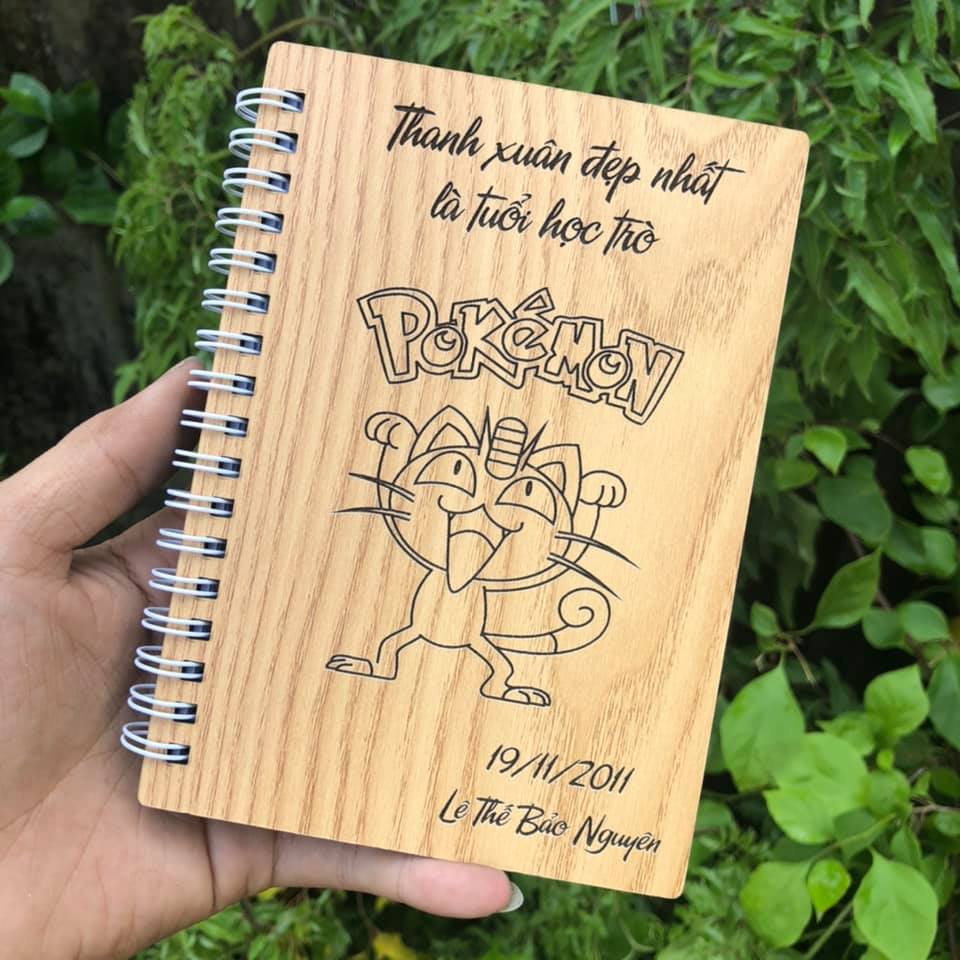 Thanh xuân đẹp nhất
là tuổi học trò
POKÉMON
19/11/2011
Lê Thế Bảo Nguyên